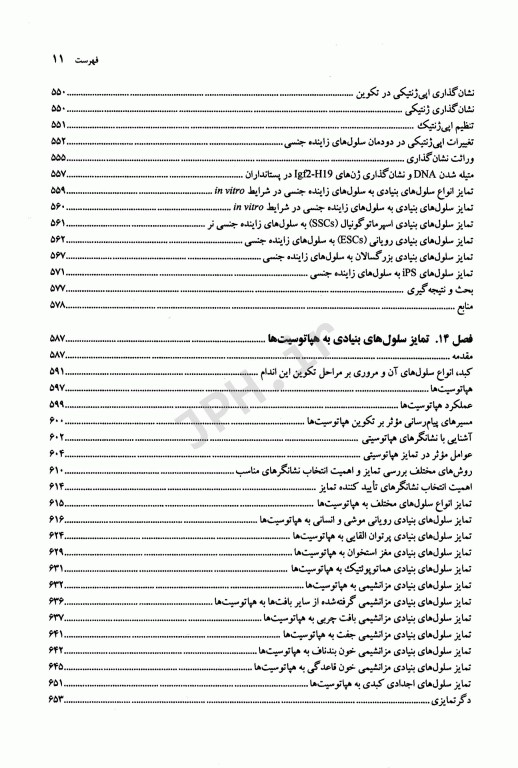 فهرست ۱۱
نشان‌گذاری اپی‌ژنتیکی در تکوین ۵۵۰
نشان‌گذاری ژنتیکی ۵۵۰
تنظیم اپی‌ژنتیک ۵۵۱
تغییرات اپی‌ژنتیکی در دودمان سلول‌های زاینده جنسی ۵۵۲
وراثت نشان‌گذاری ۵۵۵
متیله شدن DNA و نشان‌گذاری ژن‌های Igf2-H19 در پستانداران ۵۵۷
تمایز انواع سلول‌های بنیادی به سلول‌های زاینده جنسی در شرایط in vitro ۵۵۹
تمایز سلول‌های بنیادی به سلول‌های زاینده جنسی در شرایط in vitro ۵۶۰
تمایز سلول‌های بنیادی اسپرماتوگونیال (SSCs) به سلول‌های زاینده جنسی نر ۵۶۱
تمایز سلول‌های بنیادی رویانی (ESCs) به سلول‌های زاینده جنسی ۵۶۲
تمایز سلول‌های بنیادی بزرگسالان به سلول‌های زاینده جنسی ۵۶۷
تمایز سلول‌های iPS به سلول‌های زاینده جنسی ۵۷۱
بحث و نتیجه‌گیری ۵۷۷
منابع ۵۷۸
فصل ۱۴. تمایز سلول‌های بنیادی به هپاتوسیت‌ها ۵۸۷
مقدمه ۵۸۷
کبد، انواع سلول‌های آن و مروری بر مراحل تکوین این اندام ۵۹۱
هپاتوسیت‌ها ۵۹۷
عملکرد هپاتوسیت‌ها ۵۹۹
مسیرهای پیام‌رسانی مؤثر بر تکوین هپاتوسیت‌ها ۶۰۰
آشنایی با نشانگرهای هپاتوسیتی ۶۰۲
عوامل مؤثر در تمایز هپاتوسیتی ۶۰۴
روش‌های مختلف بررسی تمایز و اهمیت انتخاب نشانگرهای مناسب ۶۱۰
اهمیت انتخاب نشانگرهای تأیید کننده تمایز ۶۱۴
تمایز انواع سلول‌های مختلف به هپاتوسیت‌ها ۶۱۵
تمایز سلول‌های بنیادی رویانی موشی و انسانی به هپاتوسیت‌ها ۶۱۶
تمایز سلول‌های بنیادی پرتوان القایی به هپاتوسیت‌ها ۶۲۴
تمایز سلول‌های بنیادی مغز استخوان به هپاتوسیت‌ها ۶۲۹
تمایز سلول‌های بنیادی هماتوپوئتیک به هپاتوسیت‌ها ۶۳۱
تمایز سلول‌های بنیادی مزانشیمی به هپاتوسیت‌ها ۶۳۲
تمایز سلول‌های بنیادی مزانشیمی گرفته‌شده از سایر بافت‌ها به هپاتوسیت‌ها ۶۳۶
تمایز سلول‌های بنیادی مزانشیمی بافت چربی به هپاتوسیت‌ها ۶۳۷
تمایز سلول‌های بنیادی مزانشیمی جفت به هپاتوسیت‌ها ۶۴۱
تمایز سلول‌های بنیادی مزانشیمی خون بندناف به هپاتوسیت‌ها ۶۴۲
تمایز سلول‌های بنیادی مزانشیمی خون قاعدگی به هپاتوسیت‌ها ۶۴۵
تمایز سلول‌های اجدادی کبدی به هپاتوسیت‌ها ۶۵۱
دگرتمایزی ۶۵۳
JPH.ir